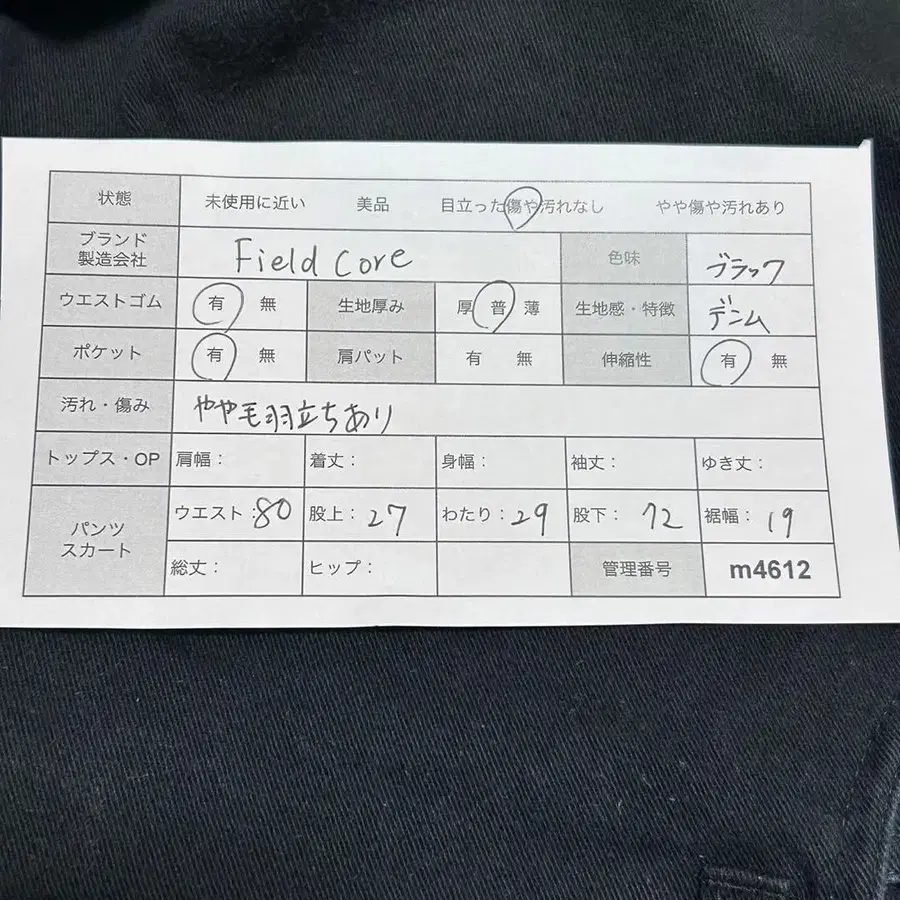 状態 未使用に近い 美品 目立った傷や汚れなし やや傷や汚れあり
ブランド 製造会社 Field Core 色味 ブラック
ウエストゴム 有 無 生地厚み 厚 普 薄 生地感・特徴 デニム
ポケット 有 無 肩パット 有 無 伸縮性 有 無
汚れ・傷み やや毛羽立ちあり
トップス・OP 肩幅: 着丈: 身幅: 袖丈: ゆき丈:
パンツ スカート ウエスト:80 股上:27 わたり:29 股下:72 裾幅:19
総丈: ヒップ: 管理番号 m4612